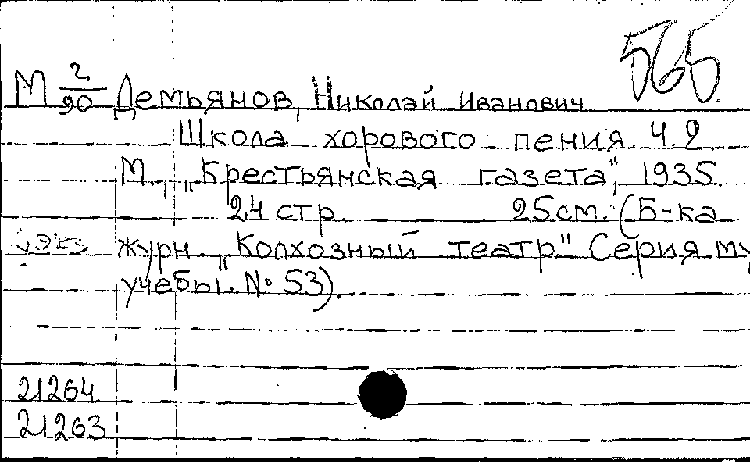 565
М 2/90 Демьянов, Николай Иванович
Школа хорового пения Ч. 2
М., „Крестьянская газета", 1935
24 стр. 25см. (Б-ка
журн. „Колхозный театр" Серия му
учебы". № 53).
21264
21263